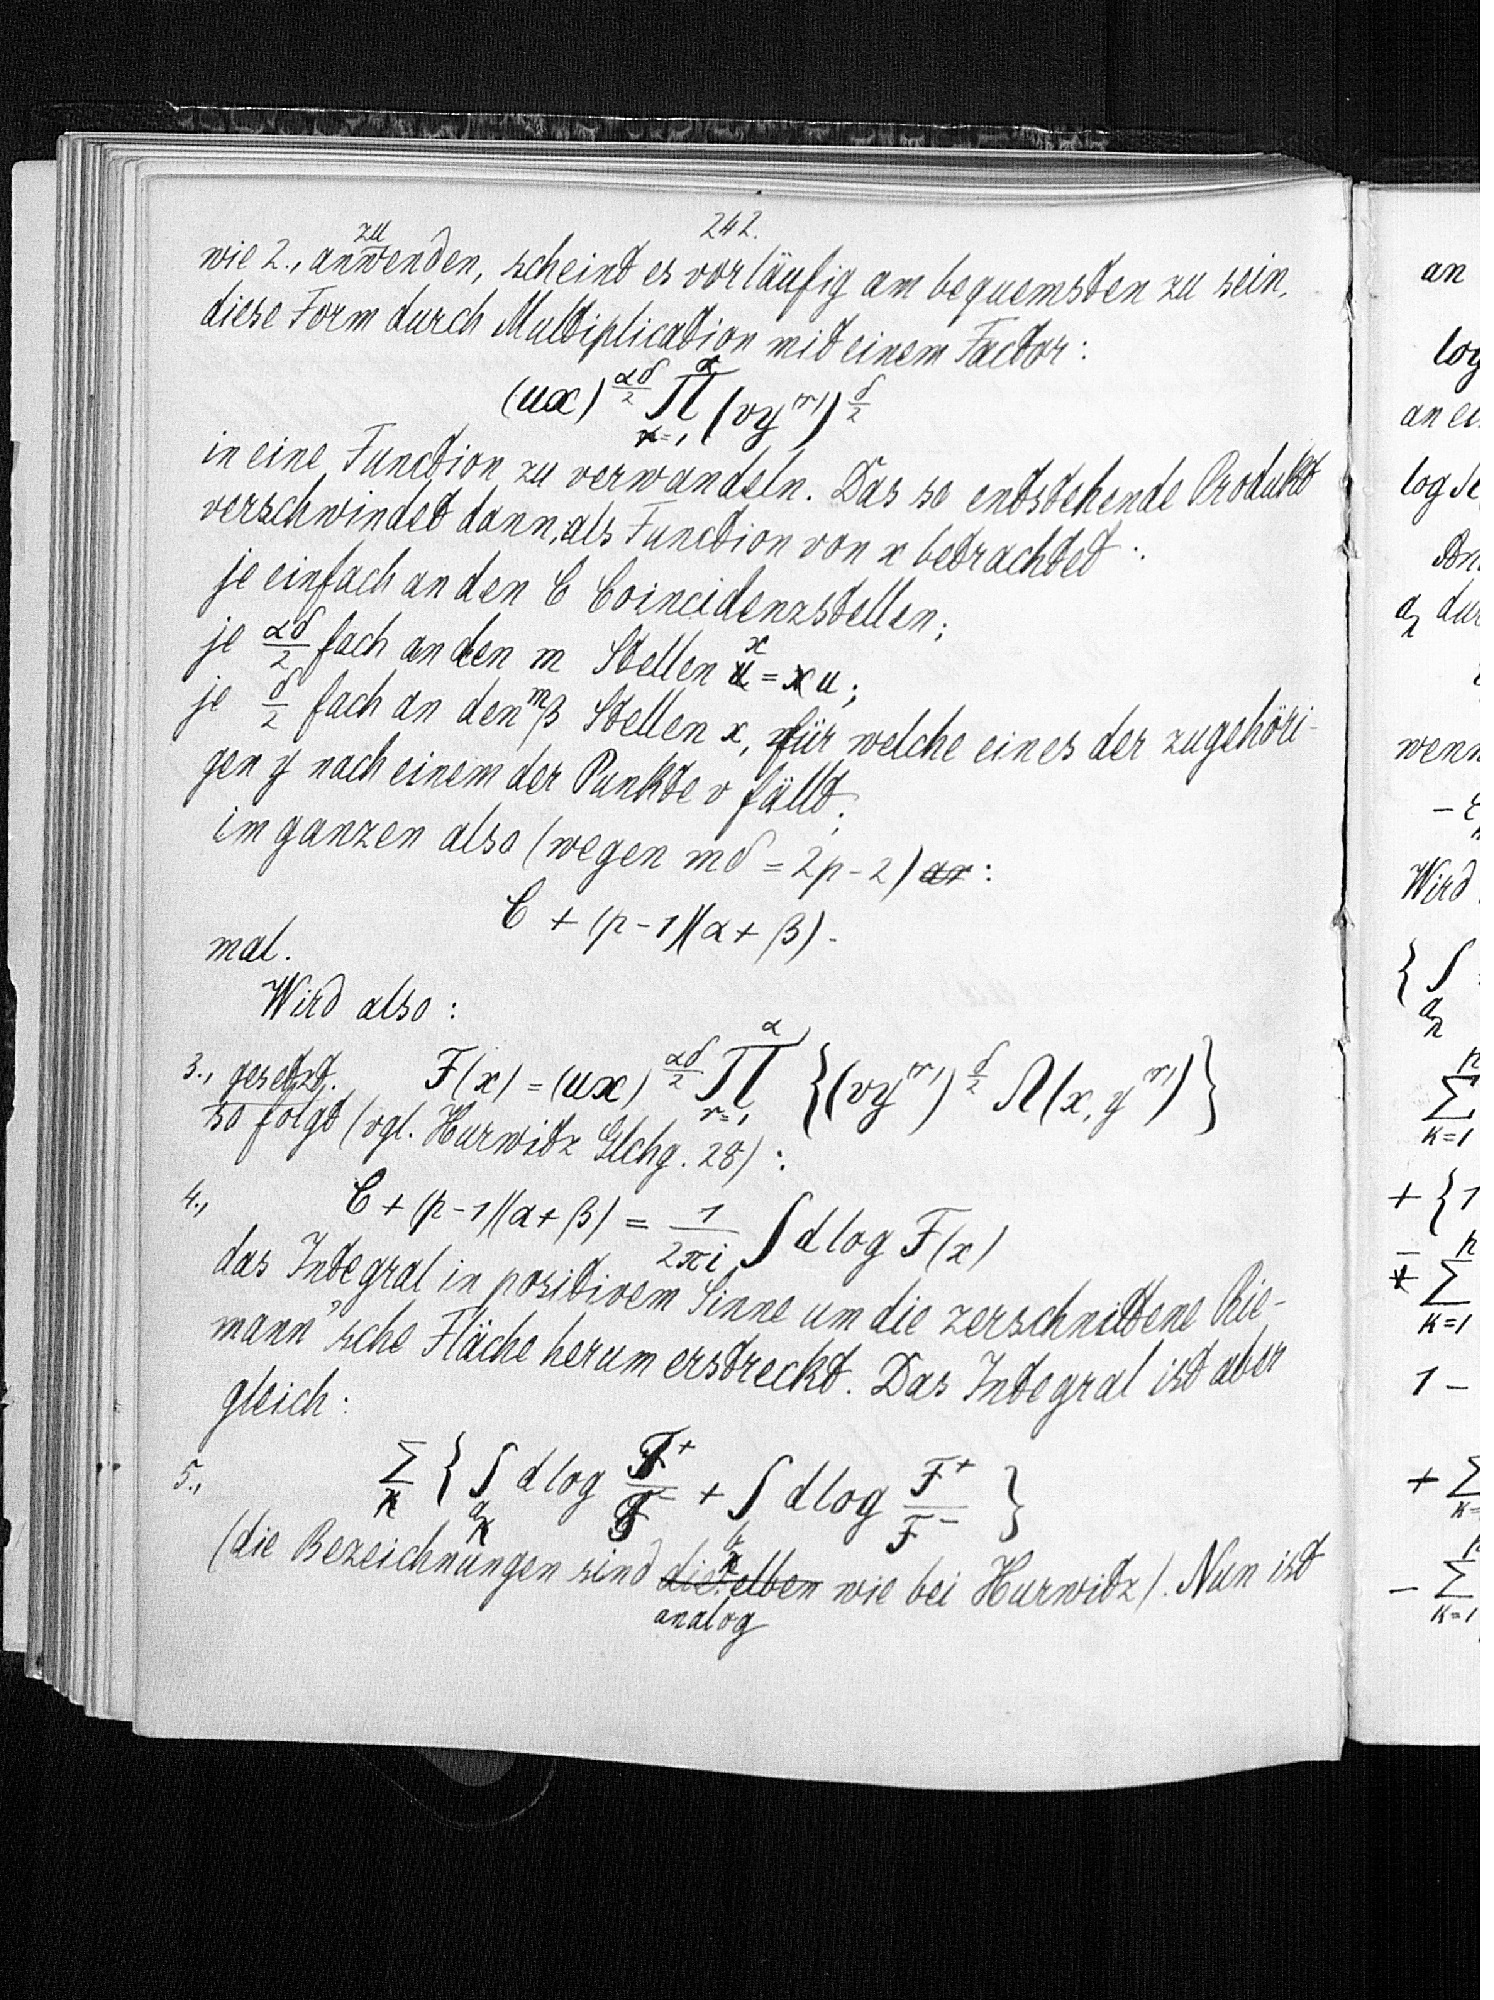 242.
wie 2., anwenden, scheint es vorläufig am bequemsten zu sein,
zu
diese Form durch Multiplication mit einem Factor:
(ux)^{αδ/2} ∏_{r=1}^{α} (vy^{(r)})^{δ/2}
in eine Function zu verwandeln. Das so entstehende Produkt
verschwindet dann, als Function von x betrachtet:
je einfach an den C Coincidenzstellen;
je αδ/2 fach an den m Stellen x = u;
je δ/2 fach an den mβ Stellen x, für welche eines der zugehöri-
gen y nach einem der Punkte v fällt;
im ganzen also (wegen mδ = 2p-2) :
C + (p-1)(α+β).
mal.
Wird also:
3., gesetzt. F(x) = (ux)^{αδ/2} ∏_{r=1}^{α} {(vy^{(r)})^{δ/2} Ω(x, y^{(r)})}
so folgt (vgl. Hurwitz Glchg. 28):
4., C + (p-1)(α+β) = 1/2πi ∫ d log F(x)
das Integral in positivem Sinne um die zerschnittene Rie-
mann'sche Fläche herum erstreckt. Das Integral ist aber
gleich:
5., Σ_κ {∫_{a_κ} d log F⁺/F⁻ + ∫_{b_κ} d log F⁺/F⁻ }
(die Bezeichnungen sind dieselben wie bei Hurwitz). Nun ist
analog
an
log
an ei
log
a du
wenn
Wird
{∫
Σ
κ=1
+ {1
Σ
κ=1
1 -
+ Σ
- Σ
κ=1